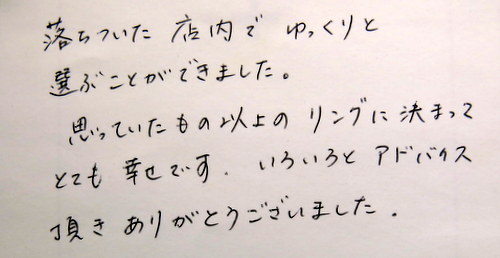 落ちついた 店内で ゆっくりと
選ぶことができました。
思っていたもの以上の リングに決まって
とても 幸せです. いろいろと アドバイス
頂き ありがとうございました.